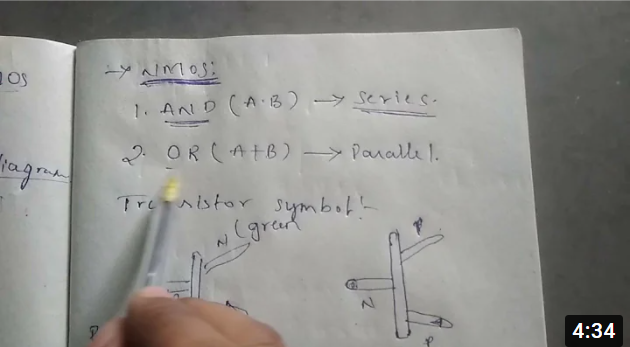 MOS
diagram
→ NMOS:
1. AND (A·B) → series.
2. OR (A+B) → Parallel.
symbol:-
(green
N
P
N
P
4:34